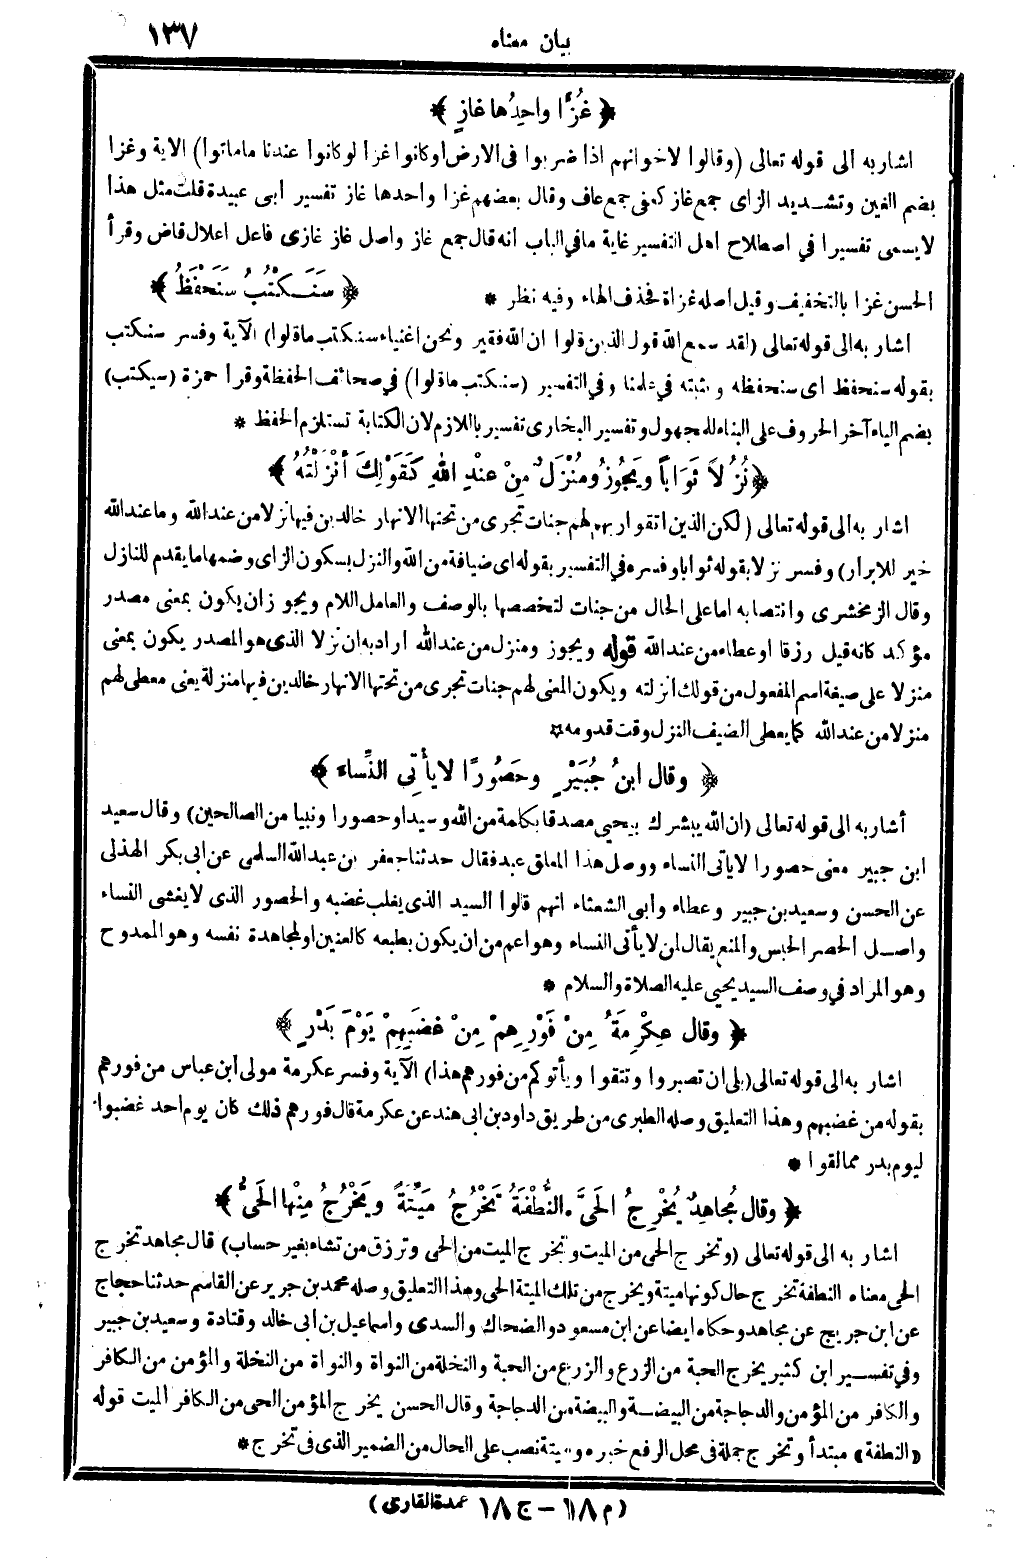 بيان معناه ١٣٧
﴿ غُزًّا واحِدُها غازٍ ﴾
اشار به الى قوله تعالى (وقالوا لاخوانهم اذا ضربوا فى الارض اوكانوا غزا لوكانوا عندنا ماماتوا) الاية وغزا
بضم الغين وتشديد الزاى جمع غاز كعفى جمع عاف وقال بعضهم غزا واحدها غاز تفسير ابى عبيدة قلت مثل هذا
لايسمى تفسيرا في اصطلاح اهل التفسير غاية مافي الباب انه قال جمع غاز واصل غاز غازى فاعل اعلال قاض وقرأ
الحسن غزا بالتخفيف وقيل اصله غزاة فحذف الهاء وفيه نظر * ﴿ سَنَكْتُبُ سَنَحْفَظُ ﴾
أشار به الى قوله تعالى (لقد سمع الله قول الذين قالوا ان الله فقير ونحن اغنياء سنكتب ماقالوا) الآية وفسر سنكتب
بقوله سنحفظ اى سنحفظه ونثبته في علمنا وفي التفسير (سنكتب ماقالوا) في صحائف الحفظة وقرا حمزة (سيكتب)
بضم الياء آخر الحروف على البناء للمجهول وتفسير البخارى تفسير باللازم لان الكتابة تستلزم الحفظ *
﴿ نُزُلاً ثَوَاباً ويَجُوزُ ومُنْزَلٌ مِنْ عِنْدِ اللهِ كَقَوْلِكَ أنْزَلْتُهُ ﴾
اشار به الى قوله تعالى (لكن الذين اتقوا ربهم لهم جنات تجرى من تحتها الانهار خالدين فيها نزلا من عند الله وما عند الله
خير للابرار) وفسر نزلا بقوله ثوابا وفسره في التفسير بقوله اى ضيافة من الله والنزل بسكون الزاى وضمها ما يقدم للنازل
وقال الزمخشرى وانتصابه اما على الحال من جنات لتخصصها بالوصف والعامل اللام ويجوز ان يكون بمعنى مصدر
مؤكد كانه قيل رزقا او عطاء من عند الله قوله ويجوز ومنزل من عند الله اراد به ان نزلا الذى هو المصدر يكون بمعنى
منزلا على صيغة اسم المفعول من قولك انزلته ويكون المعنى لهم جنات تجرى من تحتها الانهار خالدين فيها منزلة يعنى معطى لهم
منزلا من عند الله كما يعطى الضيف النزل وقت قدومه *
﴿ وقال ابنُ جُبَيْرٍ وحَصُورًا لا يأْتِى النِّساءَ ﴾
أشار به الى قوله تعالى (ان الله يبشرك بيحيى مصدقا بكلمة من الله وسيدا وحصورا ونبيا من الصالحين) وقال سعيد
ابن جبير معنى حصورا لا ياتى النساء ووصل هذا المعلق عبد فقال حدثنا جعفر بن عبد الله السلمى عن ابى بكر الهذلى
عن الحسن وسعيد بن جبير وعطاء وأبى الشعثاء انهم قالوا السيد الذى يغلب غضبه والحصور الذى لا يغشى النساء
واصل الحصر الحبس والمنع يقال لمن لا يأتى النساء وهو اعم من ان يكون بطبعه كالعنين او لمجاهدة نفسه وهو الممدوح
وهو المراد في وصف السيد يحيى عليه الصلاة والسلام *
﴿ وقال عِكْرِمَةُ مِنْ فَوْرِهِمْ مِنْ غَضَبِهِمْ يَوْمَ بَدْرٍ ﴾
اشار به الى قوله تعالى (بلى ان تصبروا وتتقوا ويأتوكم من فورهم هذا) الآية وفسر عكرمة مولى ابن عباس من فورهم
بقوله من غضبهم وهذا التعليق وصله الطبرى من طريق داود بن ابى هند عن عكرمة قال فورهم ذلك كان يوم احد غضبوا
ليوم بدر مما لقوا *
﴿ وقال مُجاهِدٌ يُخْرِجُ الحَىَّ النُّطْفَةُ تَخْرُجُ مَيِّتَةً ويَخْرُجُ مِنْها الحَىُّ ﴾
اشار به الى قوله تعالى (وتخرج الحى من الميت وتخرج الميت من الحى وترزق من تشاء بغير حساب) قال مجاهد تخرج
الحى معناه النطفة تخرج حال كونها ميتة ويخرج من تلك الميتة الحى وهذا التعليق وصله محمد بن جرير عن القاسم حدثنا حجاج
عن ابن جريج عن مجاهد وحكاه ايضا عن ابن مسعود والضحاك والسدى واسماعيل بن ابى خالد وقتادة وسعيد بن جبير
وفي تفسير ابن كثير يخرج الحبة من الزرع والزرع من الحبة والنخلة من النواة والنواة من النخلة والمؤمن من الكافر
والكافر من المؤمن والدجاجة من البيضة والبيضة من الدجاجة وقال الحسن يخرج المؤمن الحى من الكافر الميت قوله
«النطفة» مبتدأ وتخرج جملة فى محل الرفع خبره وميتة نصب على الحال من الضمير الذى فى تخرج *
(م ١٨ - ج ١٨ عمدة القارى)